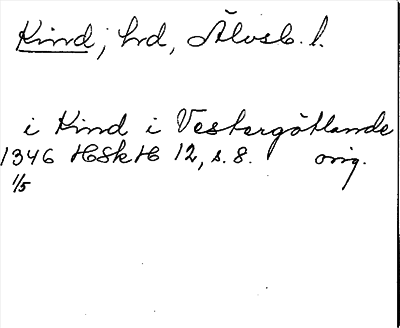 Kind, hd, Älvsb. l.
i Kind i Vestergötlande
1346 HSkH 12, s. 8. orig.
1/5